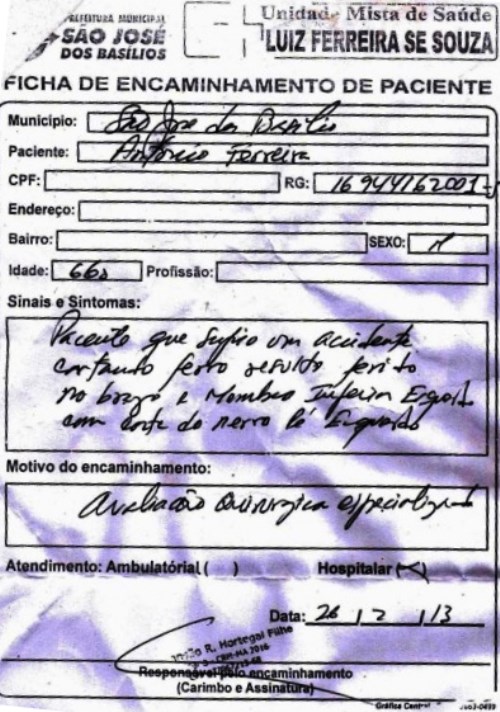 PREFEITURA MUNICIPAL
SÃO JOSÉ
DOS BASÍLIOS
Unidade Mista de Saúde
LUIZ FERREIRA SE SOUZA
FICHA DE ENCAMINHAMENTO DE PACIENTE
Municipio: São Jose dos Basilio
Paciente: Antonio Ferreira
CPF:
RG: 16944162001-
Endereço:
Bairro:
SEXO: M
Idade: 66a
Profissão:
Sinais e Sintomas:
Paciente que sufrio um accidente
cortando ferro ferito
no brazo e Membro Inferior
com corte do nervo
Motivo do encaminhamento:
Avaliacão Quirurgica
Atendimento: Ambulatórial ( )
Hospitalar ( )
Data: 26 / 2 / 13
R. Hortegal Filho
CRM-MA
Responsável pelo encaminhamento
(Carimbo e Assinatura)
Gráfica Central